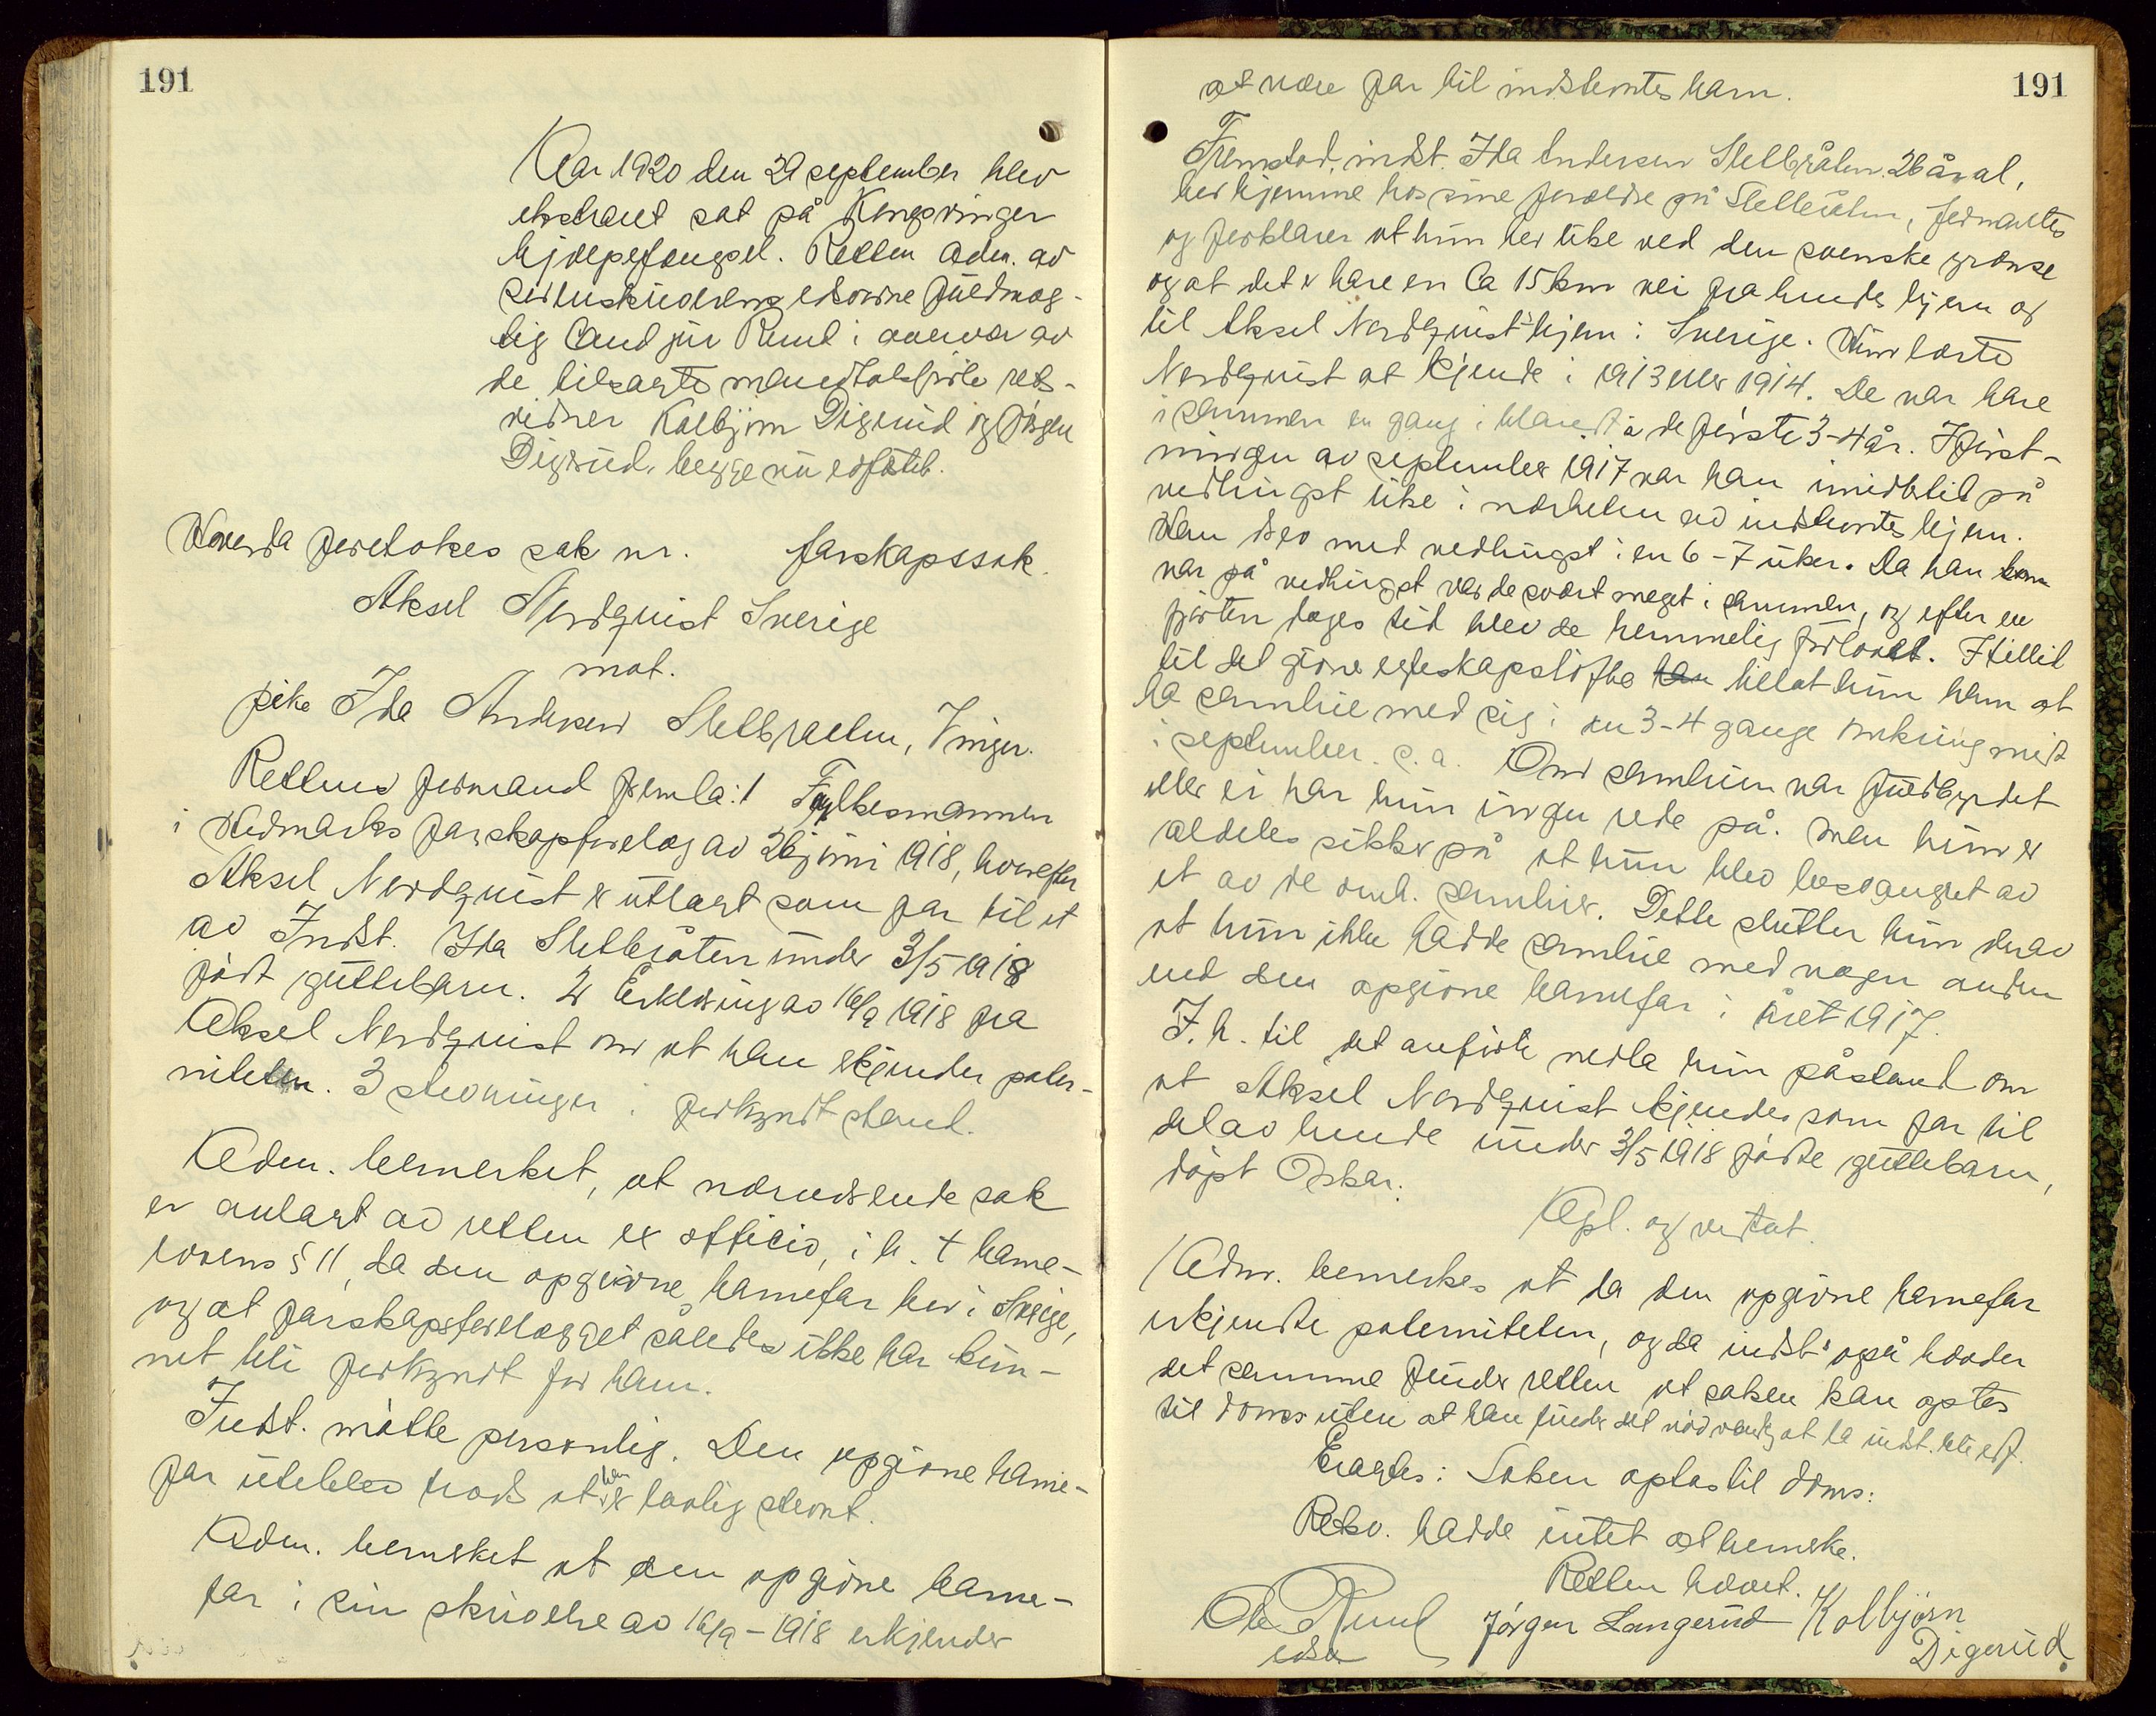 191
Aar 1920 den 29 september blev
ekstraret sat på Kongsvinger
hjælpefængsel. Retten adm. av
sorenskriverens edsvorne fuldmæg-
tig Cand jur Ruud i overvær av
de tilsagte mandtalsførte rets-
vidner Kolbjørn Digerud og Jørgen
Digerud, begge nu edfæstet.
Hvorda foretokes sak nr. farskapssak.
Aksel Nordquist Sverige
mot.
pike Ida Andersen Sletbraaten, Vinger.
Rettens formand fremla: 1 Fylkesmannen
i Hedmarks farskapsforelæg av 26 juni 1918, hvorefter
Aksel Nordquist er utlagt som far til et
av Indst. Ida Sletbråten under 3/5 1918
født guttebarn. 2 Erklæring av 16/9 1918 fra
Aksel Nordquist om at han erkjender pater-
niteten. 3 stevninger i forkyndt stand.
Adm. bemerket, at nærværende sak
er anlagt av retten ex officio, i h. t barne-
lovens § 11, da den opgivne barnefar bor i Sverige,
og at farskapsforelægget således ikke har kun-
net bli forkyndt for ham.
Indst. møtte personlig. Den opgivne barne-
far uteblev trods at han er lovlig stevnt.
Adm. bemerket at den opgivne barne-
far i sin skrivelse av 16/9 - 1918 erkjender
191
at være far til indstevntes barn.
Fremstod, indst. Ida Andersen Sletbråten 26 år al,
bor hjemme hos sine forældre på Sletbråten, formantes
og forklarer at hun bor like ved den svenske grænse
og at det er bare en Ca 15 km vei fra hendes hjem og
til Aksel Nordquist's hjem i Sverige. Hun lærte
Nordquist at kjende i 1913 eller 1914. De var bare
i sammen en gang i blandt i de første 3-4 år. I først-
ningen av september 1917 var han imidlertid på
vedhugst like i nærheten av indstevntes hjem.
Han drev med vedhugst i en 6-7 uker. Da han kom
var på vedhugst var de svært meget i sammen, og efter en
fjorten dages tid blev de hemmelig forlovet. I tillid
til det givne egteskapsløfte han tillot hun ham at
ha samleie med sig i en 3-4 gange omkring midt
i september s. a. Om samleien var fuldbyrdet
eller ei har hun ingen rede på. men hun er
aldeles sikker på at hun blev besvangret av
et av de omh. samleier. Dette slutter hun derav
at hun ikke hadde samleie med nogen anden
end den opgivne barnefar i året 1917.
I. h. til det anførte nedla hun påstand om
at Aksel Nordquist kjendes som far til
det av hende under 3/5 1918 fødte guttebarn,
døpt Oskar.
Opl. og vedtat.
Adm. bemerkes at da den opgivne barnefar
erkjendte paterniteten, og da indst. også hævder
det samme finder retten at saken kan optas
til doms uten at han finder det nødvendig at la indst. bli edf.
Eragtes: Saken optas til doms:
Retsv. hadde intet at bemerke.
Retten hævet.
Ole Ruud Jørgen Langerud Kolbjørn
edsv. Digerud.